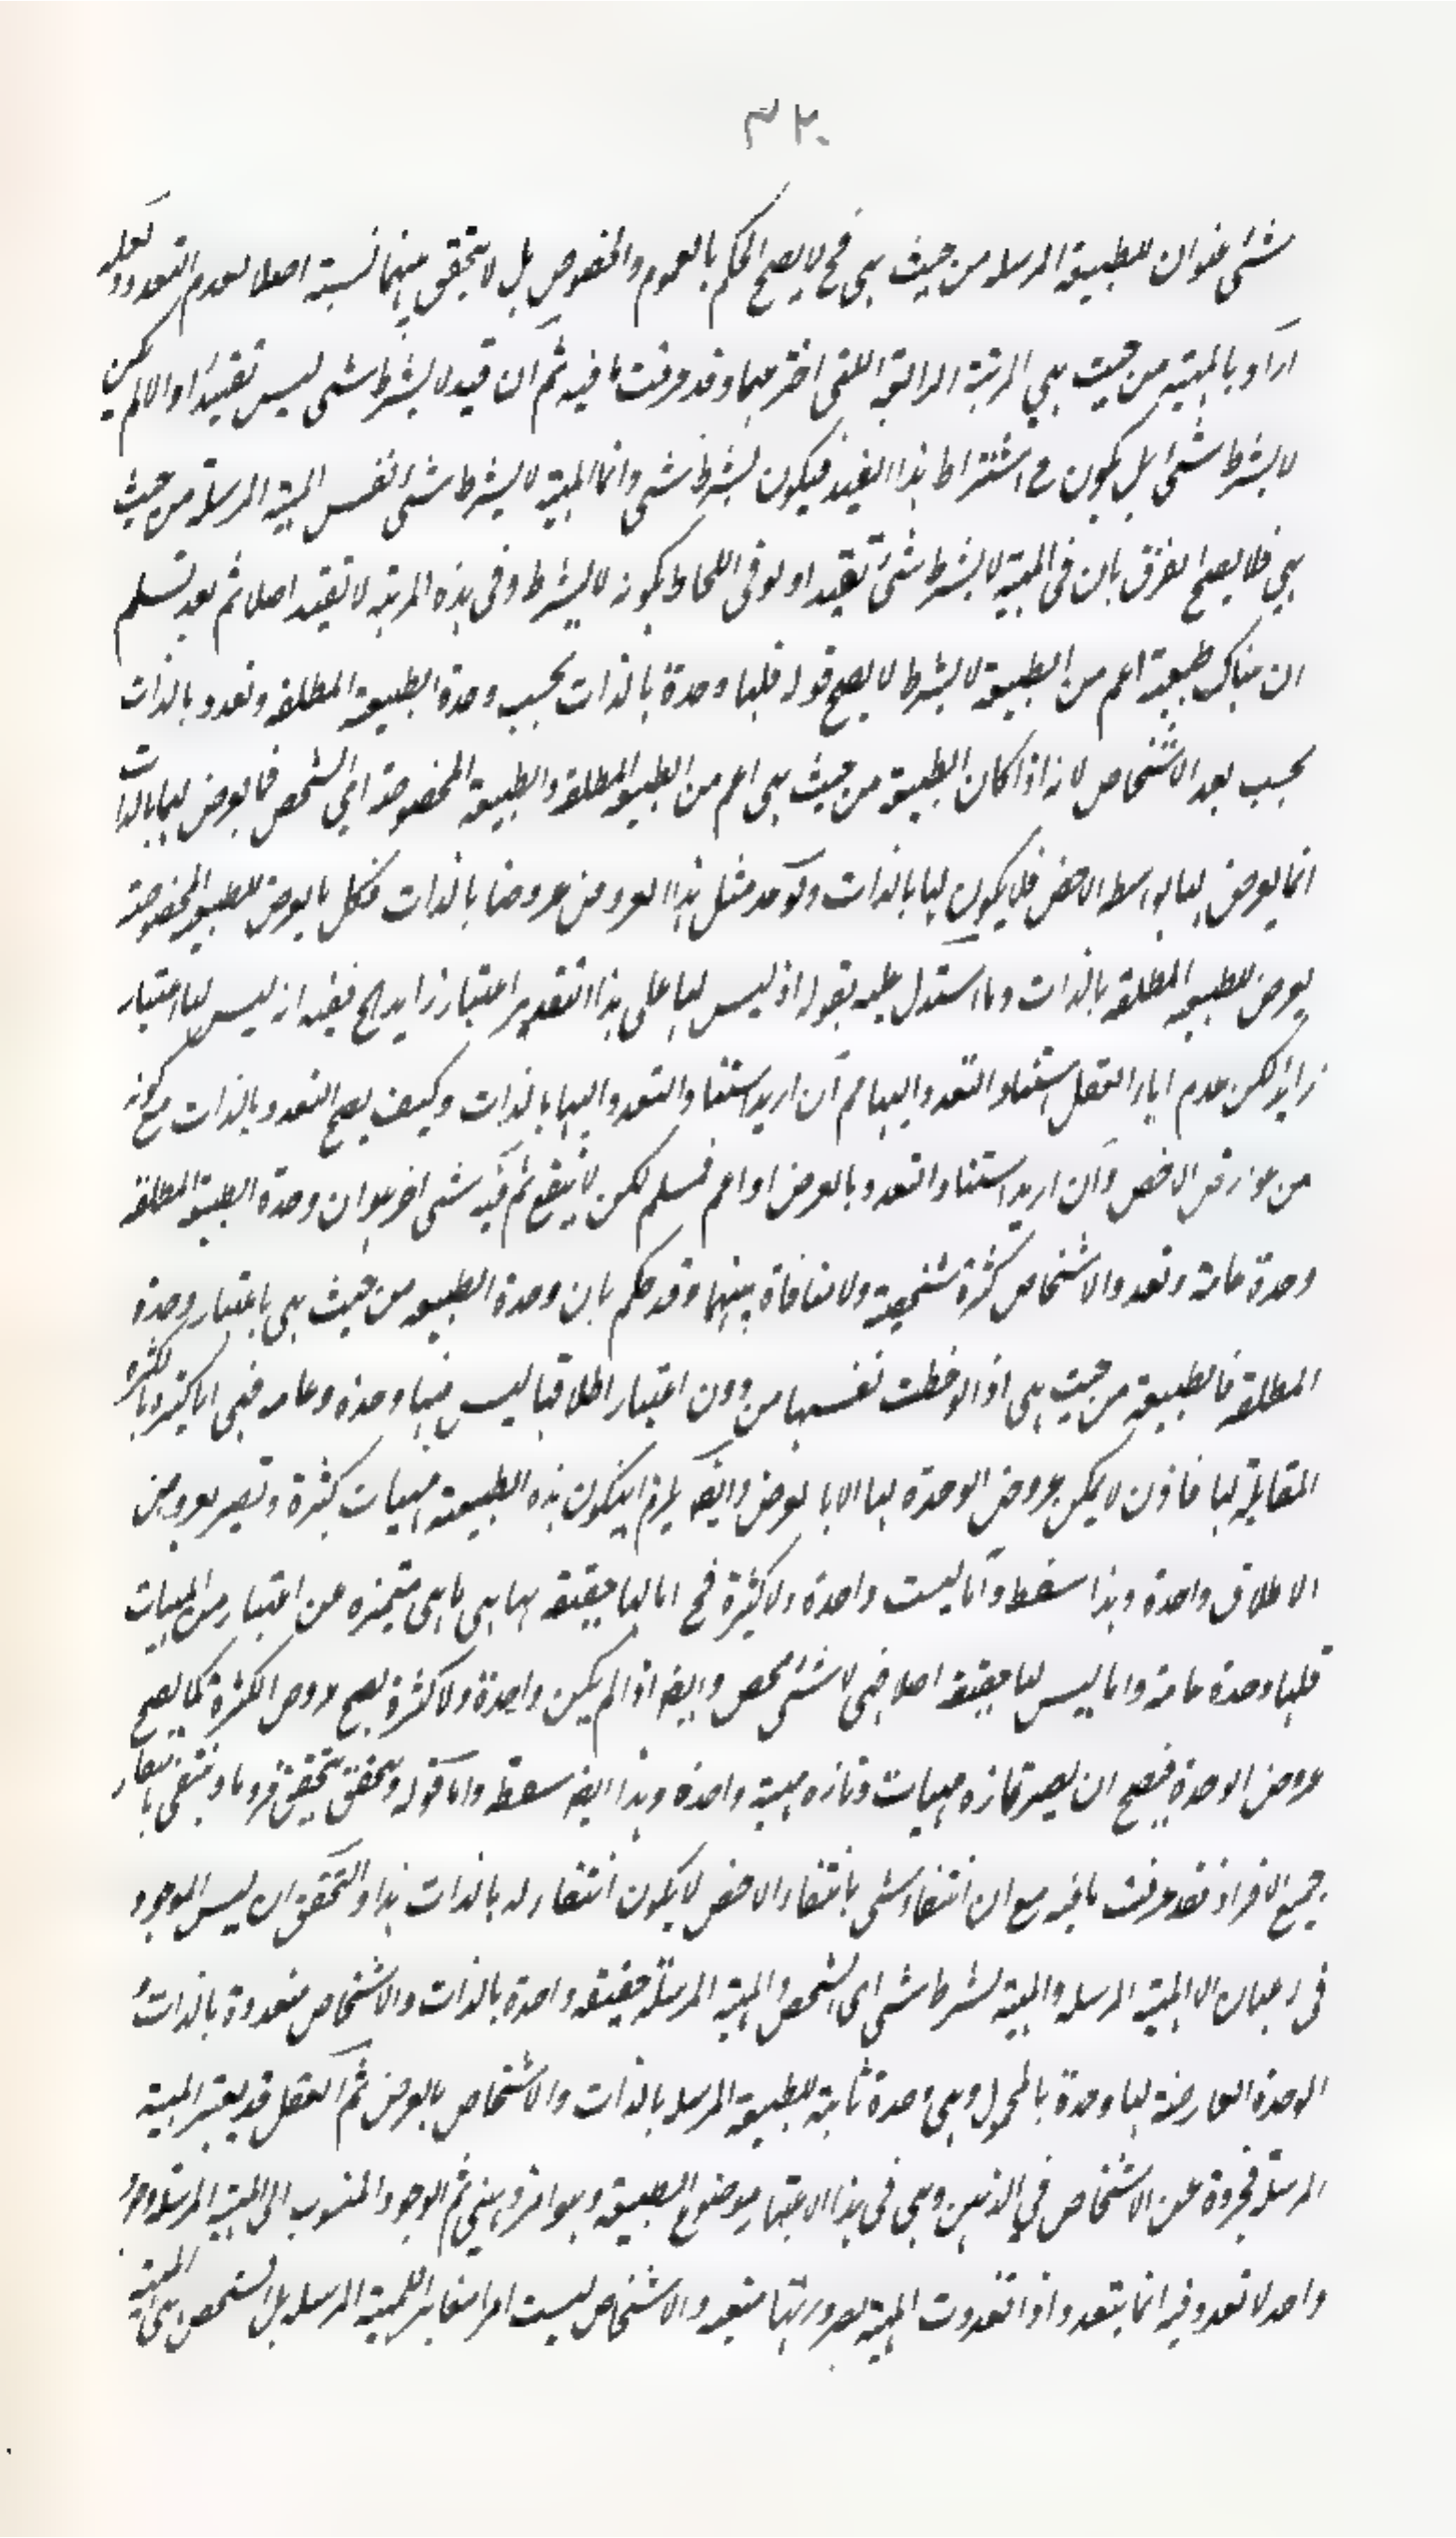 ٣٢٠
شئ عنوان للطبيعة المرسلة من حيث هى فح لا يصح الحكم بالعموم والخصوص بل لا يتحقق بينهما نسبة اصلا لعدم التعدد ولعله
اراد بالمهية من حيث هي المرتبة الرابعة اللتى اخترعها وقد عرفت ما فيه ثم ان قيد لا بشرط شى ليس تقييدا والا لم يكن
لا بشرط شئ بل يكون ح اشتراط هذا القيد فيكون بشرط شى وانما المهية لا بشرط شئ نفس المهية المرسلة من حيث
هي فلا يصح الفرق بان فى المهية لا بشرط شئ تقيد او لو فى اللحاظ بكونه لا بشرط وفى هذه المرتبة لا تقيد اصلا ثم بعد تسليم
ان هناك طبيعة اعم من الطبيعة لا بشرط لا يصح قوله فلها وحدة بالذات بحسب وحدة الطبيعة المطلقة وتعدد بالذات
بحسب تعدد الاشخاص لانه اذا كان الطبيعة من حيث هى اعم من الطبيعة المطلقة والطبيعة المخصوصة اي الشخص فما يعرض لها بالذات
انما يعرض لها بواسطة الاخص فلا يكون لها بالذات ولو عد مثل هذا العروض عروضا بالذات فكل ما يعرض للطبيعة المخصوصة
يعرض للطبيعة المطلقة بالذات وما استدل عليه بقوله اذ ليس لها على هذا التقدير اعتبار زايد الخ ففيه انه ليس لها اعتبار
زايد لكن عدم اباء العقل استناد التعدد اليها مم ان اريد استناد التعدد اليها بالذات وكيف يصح التعدد بالذات مع كونه
من عوارض الاخص وان اريد استناد التعدد بالعرض او اعم فمسلم لكن لا ينفع ثم فيه شئ اخر هو ان وحدة الطبيعة المطلقة
وحدة عامة وتعدد الاشخاص كثرة شخصية ولا منافاة بينهما وقد حكم بان وحدة الطبيعة من حيث هى باعتبار وحدة
المطلقة فالطبيعة من حيث هى اذا لوحظت نفسها من دون اعتبار اطلاقها ليس فيها وحدة وعامة فهى اما كثيرة بالكثرة
المقابلة لها فاذن لا يمكن عروض الوحدة لها الا بالعرض وايضا يلزم ان يكون هذه الطبيعة مهيات كثيرة وتصير بعروض
الاطلاق واحدة وهذا سفسط واما ليست واحدة ولا كثيرة فح اما لها حقيقة بها هى ما هى متميزه عن اعتبار من المهيات
فلها وحدة عامة واما ليس لها حقيقة اصلا فهى لا شئ محض وايضا اذا لم يكن واحدة ولا كثرة يصح عروض الكثرة كما يصح
عروض الوحدة فيصح ان يصير تارة مهيات وتارة مهية واحدة وهذا ايضا سفسطة واما قوله ويتحقق بتحقق فرد ما وينتفى بانتفاء
جميع الافراد فقد عرفت ما فيه مع ان انتفاء شئ بانتفاء الاخص لا يكون انتفاء له بالذات هذا والتحقق ان ليس الموجود
فى الاعيان الا المهية المرسلة والمهية بشرط شى اى الشخص والمهية المرسلة حقيقة واحدة بالذات والاشخاص متعددة بالذات
الوحدة العارضة لها وحدة بالعموم وهى وحدة ثابتة للطبيعة المرسلة بالذات والاشخاص بالعرض ثم العقل قد يعتبر المهية
المرسلة مجردة عن الاشخاص في الذهن وهى فى هذا الاعتبار موضوع الطبيعة وهو امر ذهني ثم الوجود المنسوب الى المهية المرسلة وجود
واحد لا تعدد فيه انما يتعدد اذا تعددت المهية بصيرورتها متعددة والاشخاص ليست امرا مغايرا للمهية المرسلة بل الشخص هى المهية